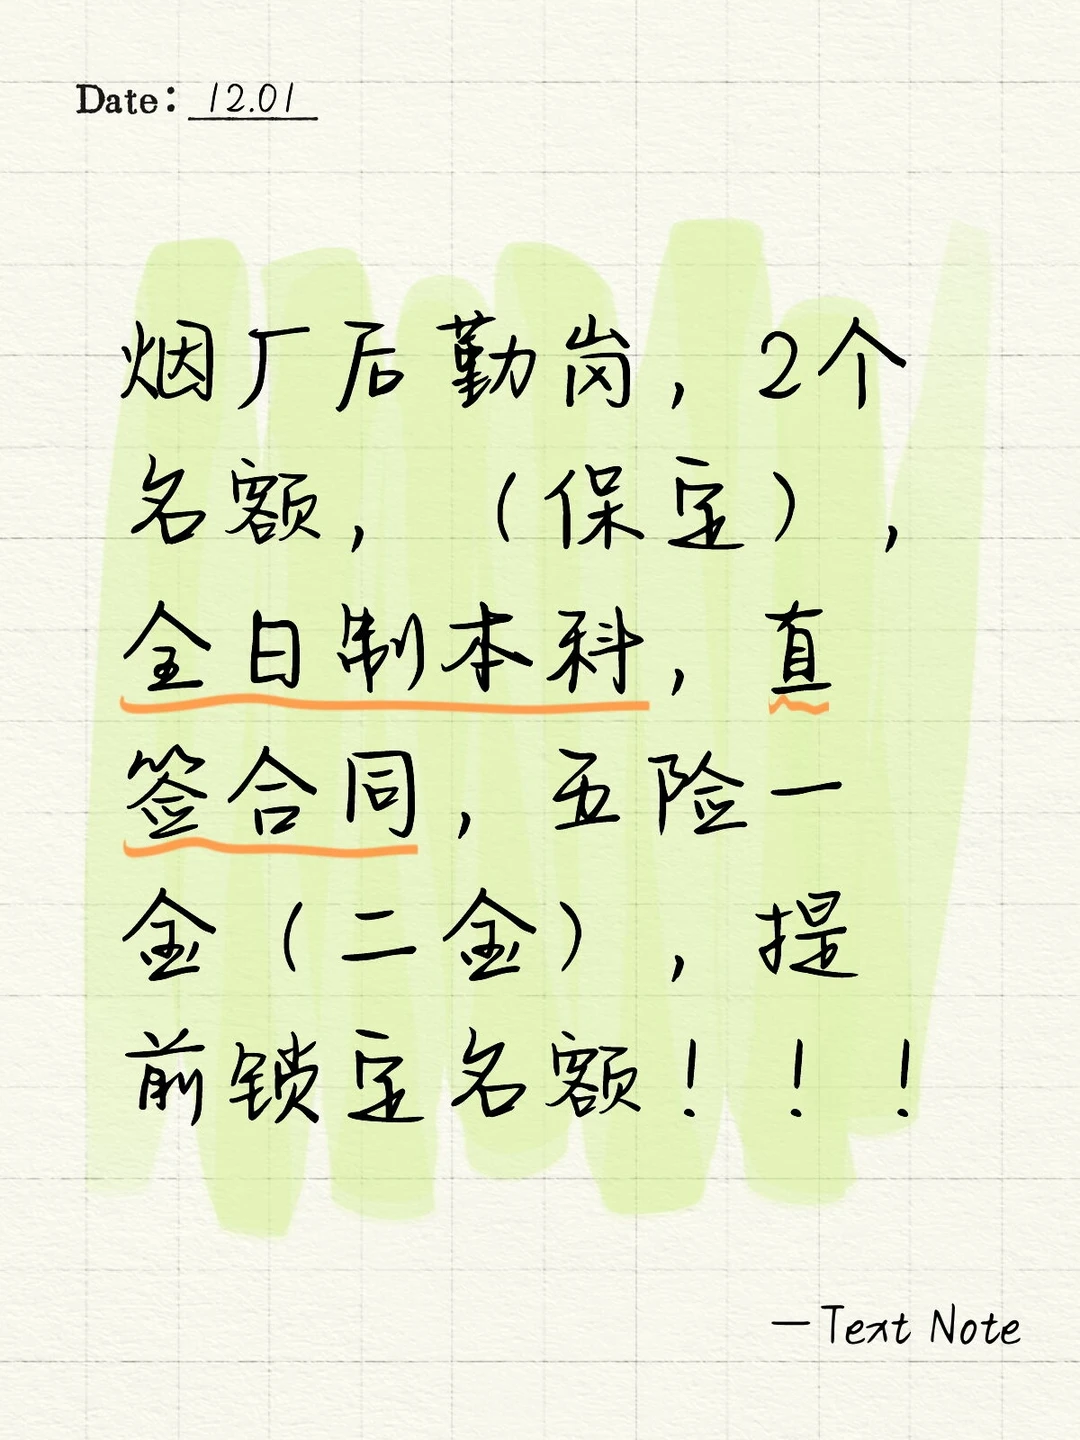 Date: 12.01
烟厂后勤岗，2个
名额，（保定），
全日制本科，直
签合同，五险一
金（二金），提
前锁定名额！！！
—Text Note